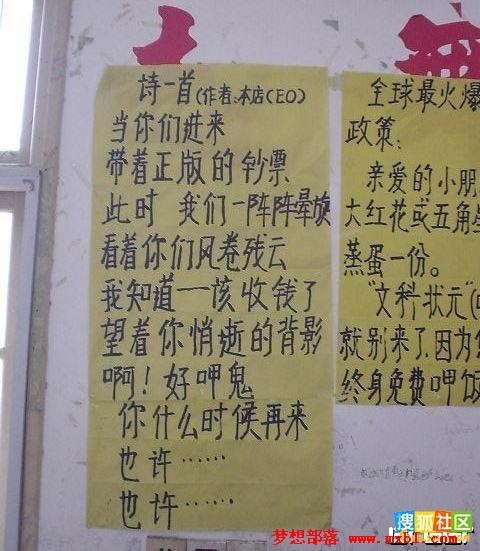 诗一首(作者:本店CEO)
当你们进来
带着正版的钞票
此时 我们一阵阵晕旋
看着你们风卷残云
我知道——该收钱了
望着你悄逝的背影
啊！好呷鬼
你什么时候再来
也许……
也许……
全球最火爆
政策:
亲爱的小朋
大红花或五角星
蒸蛋一份。
"文科状元"
就别来了,因为
终身免费呷饭
搜狐社区
梦想部落 www.mxbl.com